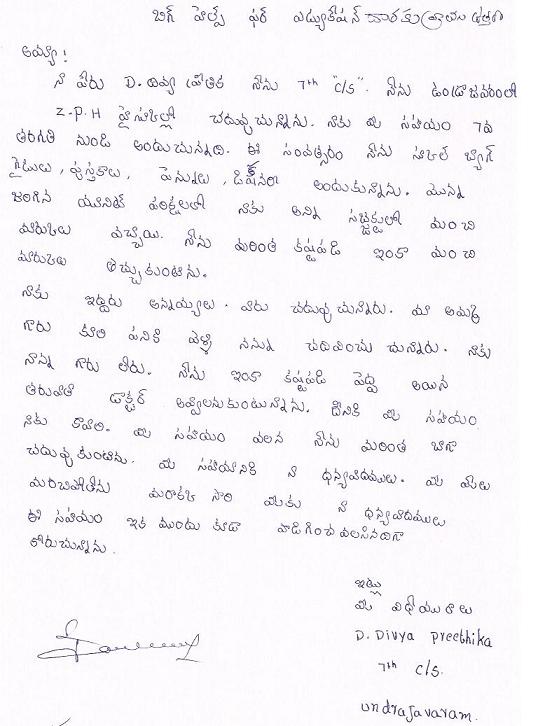 బిగ్ హెల్ప్ ఫర్ ఎడ్యుకేషన్
అయ్యా!
నా పేరు D. దివ్య ప్రీతిక నేను 7th "c/s". నేను ఉండ్రాజవరంలో
Z.P.H హైస్కూల్లో చదువుచున్నాను. నాకు మీ సహాయం 7వ
తరగతి నుండి అందుచున్నది. ఈ సంవత్సరం నేను స్కూల్ బ్యాగ్
గైడులు, పుస్తకాలు, పెన్నులు, డిక్షనరీ అందుకున్నాను. మొన్న
జరిగిన యూనిట్ పరిక్షలలో నాకు అన్ని సబ్జెక్టులలో మంచి
మారుకులు వచ్చాయి. నేను మరింత కష్టపడి ఇంకా మంచి
మారుకులు తెచ్చుకుంటాను.
నాకు ఇద్దరు అన్నయ్యలు. వారు చదువుచున్నారు. మా అమ్మ
గారు కూలి పనికి వెళ్ళి నన్ను చదివించు చున్నారు. నాకు
నాన్న గారు లేరు. నేను ఇంకా కష్టపడి పెద్ద అయిన
తరువాత డాక్టర్ అవ్వాలనుకుంటున్నాను. దీనికి మీ సహాయం
నాకు కావాలి. మీ సహాయం వలన నేను మరింత బాగా
చదువుకుంటాను. మీ సహాయానికి నా ధన్యవాదములు. మీ మేలు
మరిచిపోలేను మరొక్క సారి మీకు నా ధన్యవాదములు
ఈ సహాయం ఇక ముందు కూడా పొడిగించ వలసినదిగా
కోరుచున్నాను.
ఇట్లు
మీ విధేయురాలు
D. Divya Preethika
7th c/s.
undrajavaram.